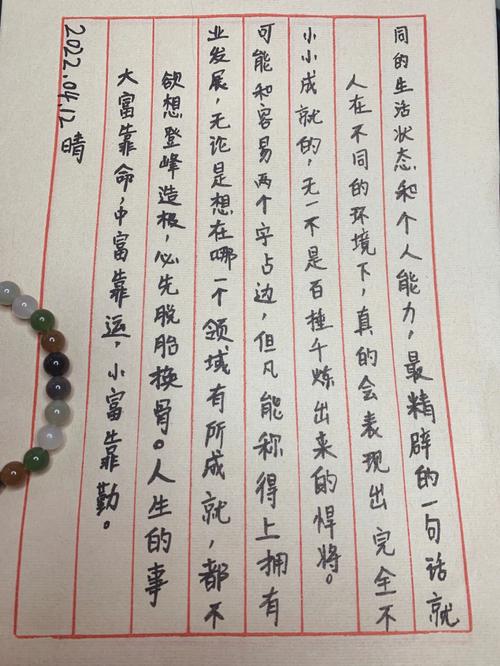 2022.04.12 晴
大富靠命，中富靠运，小富靠勤。
欲想登峰造极，必先脱胎换骨。人生的事
业发展，无论是想在哪一个领域有所成就，都不
可能和容易两个字占边，但凡能称得上拥有
小小成就的，无一不是百捶千炼出来的悍将。
人在不同的环境下，真的会表现出完全不
同的生活状态和个人能力，最精辟的一句话就